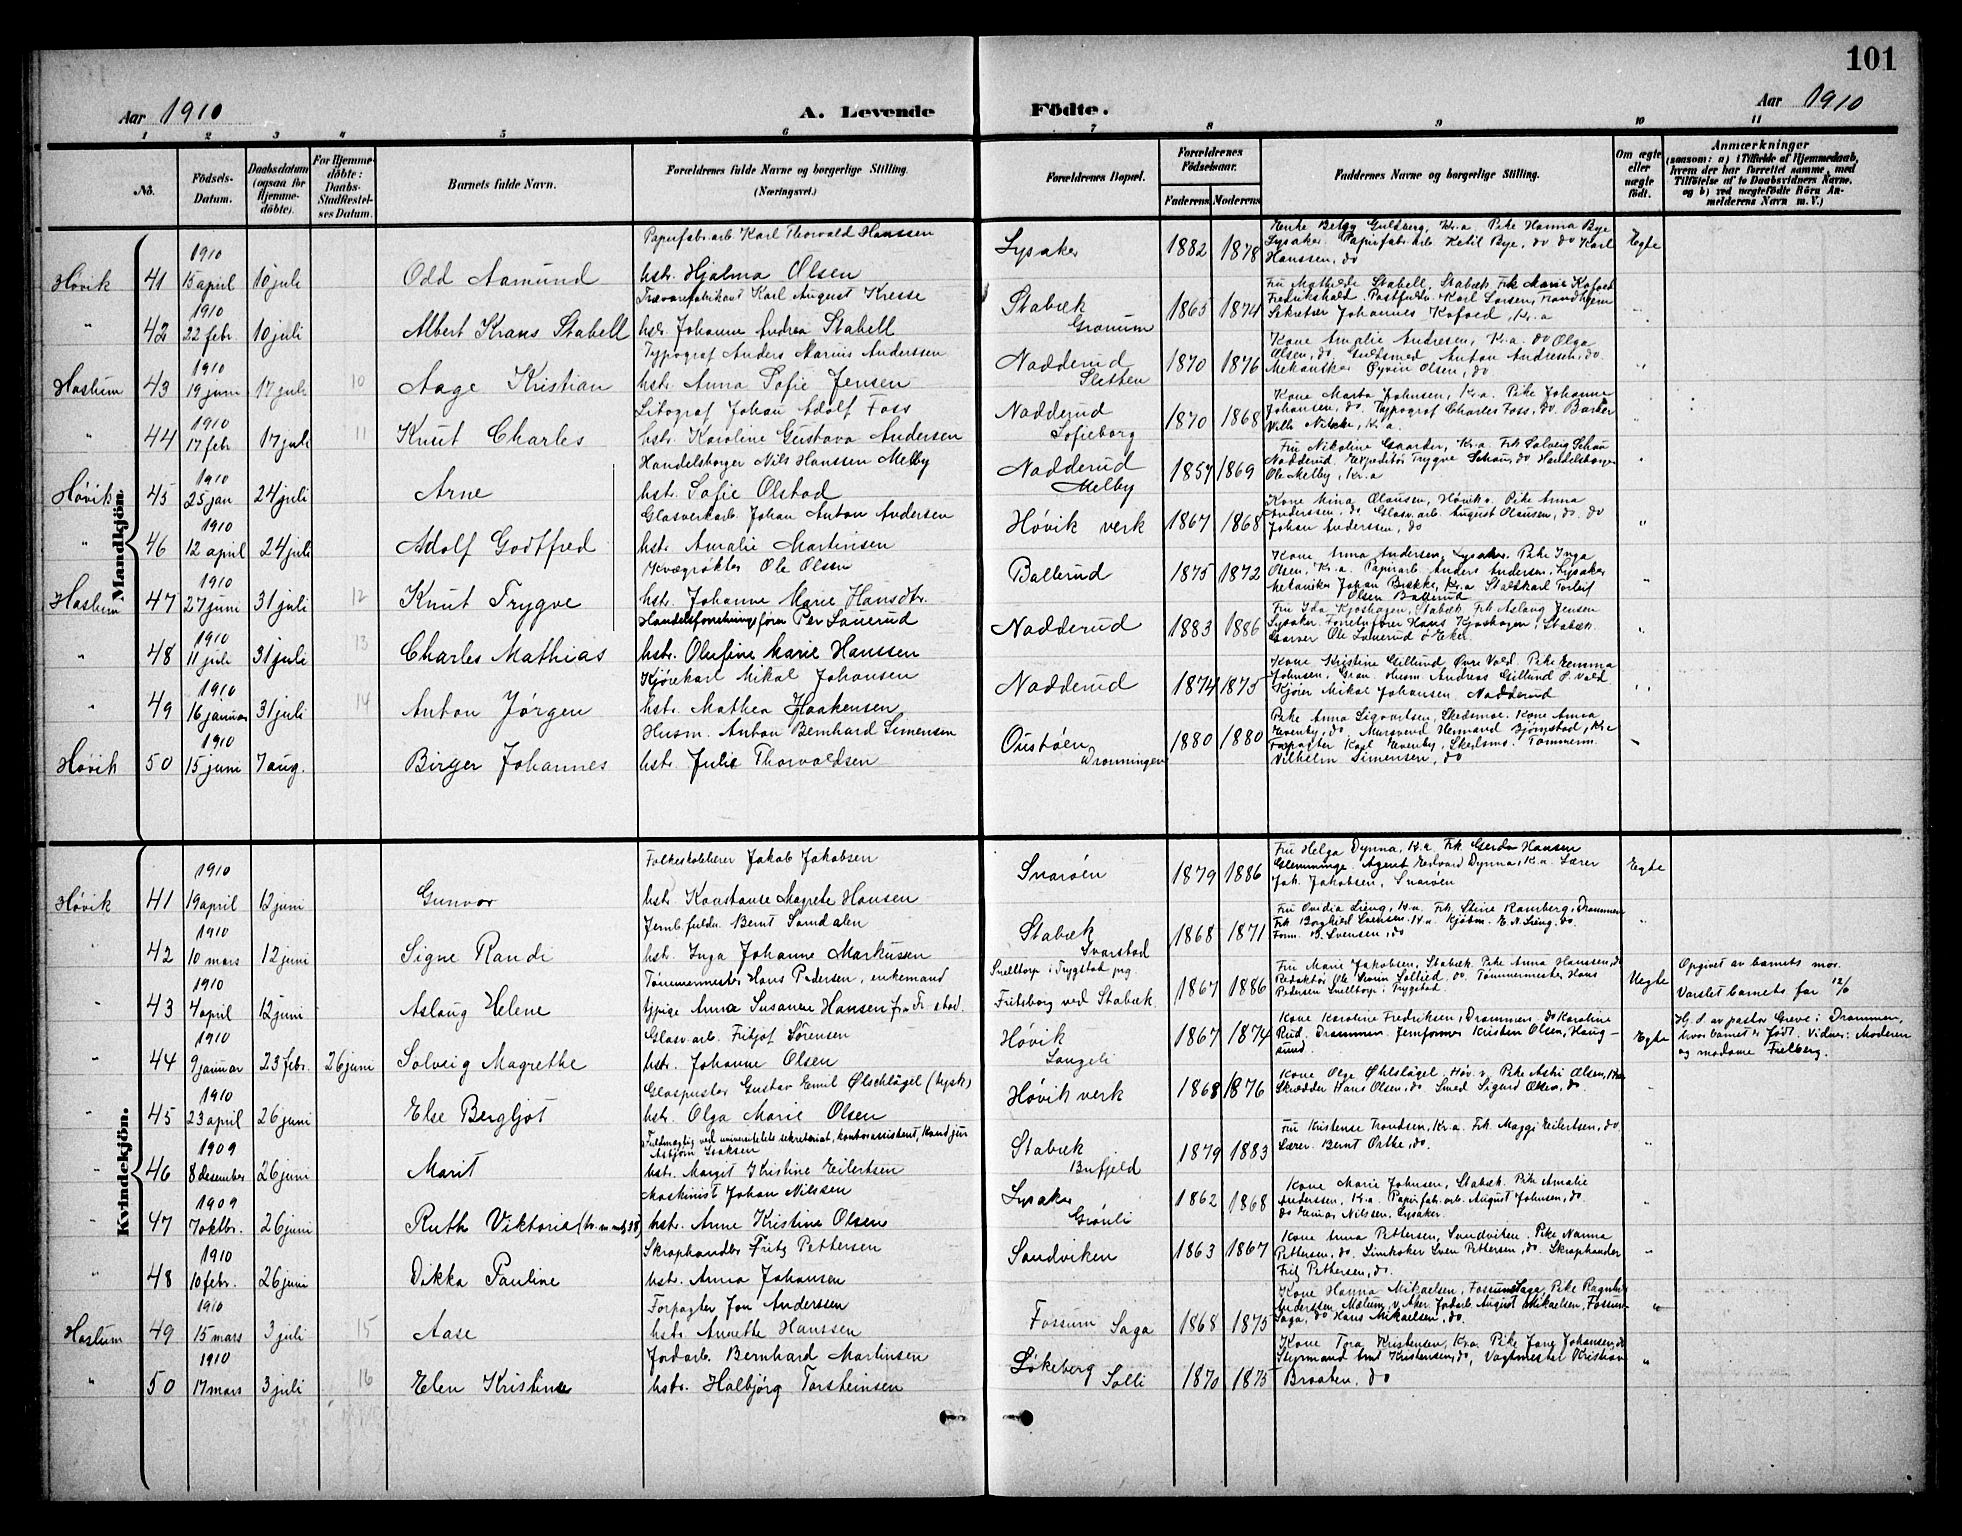 101
Aar 1910
A. Levende
Födte.
Aar 1910
1 2 3 4 5 6 7 8 9 10 11
No.
Födsels-Datum.
Daabsdatum (ogsaa for Hjemmedöbte).
For Hjemmedöbte: Daabs-Stadfæstelses Datum.
Barnets fulde Navn.
Forældrenes fulde Navne og borgerlige Stilling. (Næringsvei.)
Forældrenes Bopæl.
Forældrenes Födselsaar.
Faderens. Moderens.
Faddernes Navne og borgerlige Stilling.
Om ægte eller uægte födt.
Anmærkninger
(saasom: a) i Tilfælde af Hjemmedaab, hvem der har forrettet samme, med Tilföielse af to Daabsvidners Navne, og b) ved uægtefödte Börn Anmelderens Navn m. V.)
Mandkjön.
Høvik 41 1910 15 april 10 juli Odd Aamund
Papirfabr.arb. Karl Thorvald Hanssen
hstr. Hjalma Olsen
Lysaker 1882 1878
Lysaker. Papirfabr.arb. Ketil Bye, do do Karl
Hanssen, do
Ægte
" 42 1910 22 febr. 10 juli Albert Krans Stabell
Trævarefabrikant Karl August Kresse
hstr. Johanne Andrea Stabell
Stabæk Granum 1865 1874
Fru Mathilde Stabell, Stabæk. Frk. Marie Kofoed
Fredrikshald, Postfuldm. Karl Larsen, Trondhjem
Sekretær Johannes Kofoed, Kr.a
Haslum 43 1910 19 juni 17 juli 10 Aage Kristian
Typograf Anders Marius Anderssen
hstr. Anna Sofie Jensen
Nadderud Sletten 1870 1876
Kone Amalie Andresen, Kr.a. do Olga
Olsen, do. Guldsmed. Anton Andresen, do.
Mekaniker Øyvin Olsen, do
" 44 1910 17 febr. 17 juli 11 Knut Charles
Litograf Johan Adolf Foss
hstr. Karoline Gustava Andersen
Nadderud Sofieborg 1870 1868
Kone Marta Johnsen, Kr.a. Pike Johanne
Johansen, do. Typograf Charles Foss, do. Barber
Kr.a.
Høvik 45 1910 25 jan 24 juli Arne
Handelsborger Nils Hanssen Melby
hstr. Sofie Olstad
Nadderud Melby 1857 1869
Nadderud. Expeditør Trygve Schau, do Handelsborger
Ole Melby, Kr.a
" 46 1910 12 april 24 juli Adolf Godtfred
Glasverkarb. Johan Anton Andersen
hstr. Amalie Martinsen
Høvik verk 1867 1868
Kone Mina Olausen, Høvik v. Pike Anna
Anderssen, do. Glasv.arb. August Olausen, do. do
Johan Anderssen, do
Haslum 47 1910 27 juni 31 juli 12 Knut Trygve
Kvægrøkter Ole Olsen
hstr. Johanne Marie Hansdtr.
Ballerud 1875 1872
Kone Anna Andersen, Lysaker. Pike Inga
Olsen, Kr.a. Papirarb. Anders Andersen, Lysaker
Mekaniker Johan Bekke, Kr.a Staldkarl Torleif
Olsen Ballerud
" 48 1910 11 juli 31 juli 13 Charles Mathias
Handelsforretningsfører Per Sauerud
hstr. Olufine Marie Hanssen
Nadderud 1883 1886
Fru Ida Kjoshagen, Stabæk. Frk. Aslaug Jensen
Lysaker. Hans Kjoshagen, Stabæk.
Ole Sauerud Ø. Eker.
" 49 1910 16 januar 31 juli 14 Anton Jørgen
Kjørekarl Mikal Johansen
hstr. Mathea Haakensen
Nadderud 1874 1875
Kone Kristine Gillund, Øvre Vold. Pike Emma
Johnsen, Grav. Husm. Andreas Gillund Ø. Vold.
Kjører Mikal Johansen, Nadderud
Høvik 50 1910 15 juni 7 aug. Birger Johannes
Husm. Anton Bernhard Simensen
hstr. Julie Thorvaldsen
Oustøen Dronningen 1880 1880
Pike Anna Sigvartsen, Skedsmoe. Kone Anna
Evenby, do. Mursvend Hermand Bjørnstad, Kr.a
Forpagter Karl Evenby, Skedsmo. Tømmerm.
Vilhelm Simensen, do
Kvindekjön.
Høvik 41 1910 19 april 12 juni Gunvor
Folkeskolelærer Jakob Jakobsen
hstr. Konstanse Magrete Hansen
Snarøen 1879 1886
Fru Helga Dynna, Kr.a. Frk. Gerda Hansen
Glemminge. Agent Edvard Dynna, Kr.a. Lærer
Joh. Jakobsen, Snarøen
Egte
" 42 1910 10 mars 12 juni Signe Randi
Jernb.fuldm. Bernt Sandalen
hstr. Inga Johanne Markussen
Stabæk Svarstad 1868 1871
Fru Ovidia Lieng, Kr.a. Frk. Stine Ramberg, Drammen
Frk. Borghild Svensen. Kr.a. Kjøbm. E. N. Lieng, do.
Form. B. Svensen, do
" 43 1910 4 april 12 juni Aslaug Helene
Tømmermester Hans Pedersen, enkemand
tjpige Anna Susanne Hansen fra Fr.stad.
Snelltorp i Trygstad prg.
Fritsborg ved Stabæk 1867 1886
Fru Marie Jakobsen, Stabæk. Pike Anna Hanssen, do
Redaktør Ole Sollied, do. Tømmermester Hans
Pedersen Snelltorp i Trygstad.
Uegte
Opgivet av barnets mor.
Varslet barnets far 12/6
" 44 1910 9 januar 23 febr. 26 juni Solveig Magrethe
Glasv.arb. Fritjof Sørensen
hstr. Johanne Olsen
Høvik Langeli 1867 1874
Kone Karoline Fredriksen, Drammen. do Karoline
Rud, Drammen. Jernformer Kristen Olsen, Haug-
sund.
Egte
H. d. av pastor Greve i Drammen,
hvor barnet er født. Vidner: Moderen
og madame Fielberg.
" 45 1910 23 april 26 juni Else Bergljot
Glaspuster Gustav Emil Ølschlägel (tysk)
hstr. Olga Marie Olsen
Høvik verk 1868 1876
Kone Olga Øhlslägel, Høv. v. Pike Astri Olsen,
Skrædder Hans Olsen, do. Smed Sigurd Olsen, do.
" 46 1909 8 desember 26 juni Marit
Fuldmægtig ved universitetets sekretariat, kontorassistent, Kand. jur
Asbjørn Isaksen
hstr. Marget Kristine Eilertsen
Stabæk Bufjeld 1879 1883
Fru Kristense Trondsen, Kr.a. Frk. Maggi Eilertsen, do
Lærer. Bernt Ørbke, do.
" 47 1909 7 oktbr. 26 juni Ruth Viktoria
Maskinist Johan Nilssen
hstr. Anne Kristine Olsen
Lysaker Grønli 1862 1868
Kone Marie Johnsen, Stabæk. Pike Amalie
Anderssen, Kr.a. Papirfabr.arb. August Johnsen, do.
do Einar Nilsen, Lysaker.
" 48 1910 10 febr. 26 juni Dikka Pauline
Skraphandler Fritz Pettersen
hstr. Anna Johansen
Sandviken 1863 1867
Kone Anna Pettersen, Sandviken. Pike Nanna
Pettersen, do. Limkoker Sven Pettersen, do. Skraphandler
Fritz Pettersen, do.
Haslum 49 1910 15 mars 3 juli 15 Aase
Forpagter Jon Anderssen
hstr. Annette Hanssen
Fossum Saga 1868 1875
Kone Hanna Mikaelsen, Fossum Saga. Pike Ragnhild
Anderssen, Mælum, v. Aker. Jordarb. August Mikaelsen, Fossum
Saga, do Hans Mikaelsen, do.
" 50 1910 17 mars 3 juli 16 Elen Kristine
Jordarb. Bernhard Martinsen
hstr. Halbjørg Torsteinsen
Løkeberg Solli 1870 1875
Kone Tora Kristensen, Kr.a. Pike Jang Johansen, do
Styrmand Kristensen, do, Vagtmester Kristian
Braaten, do